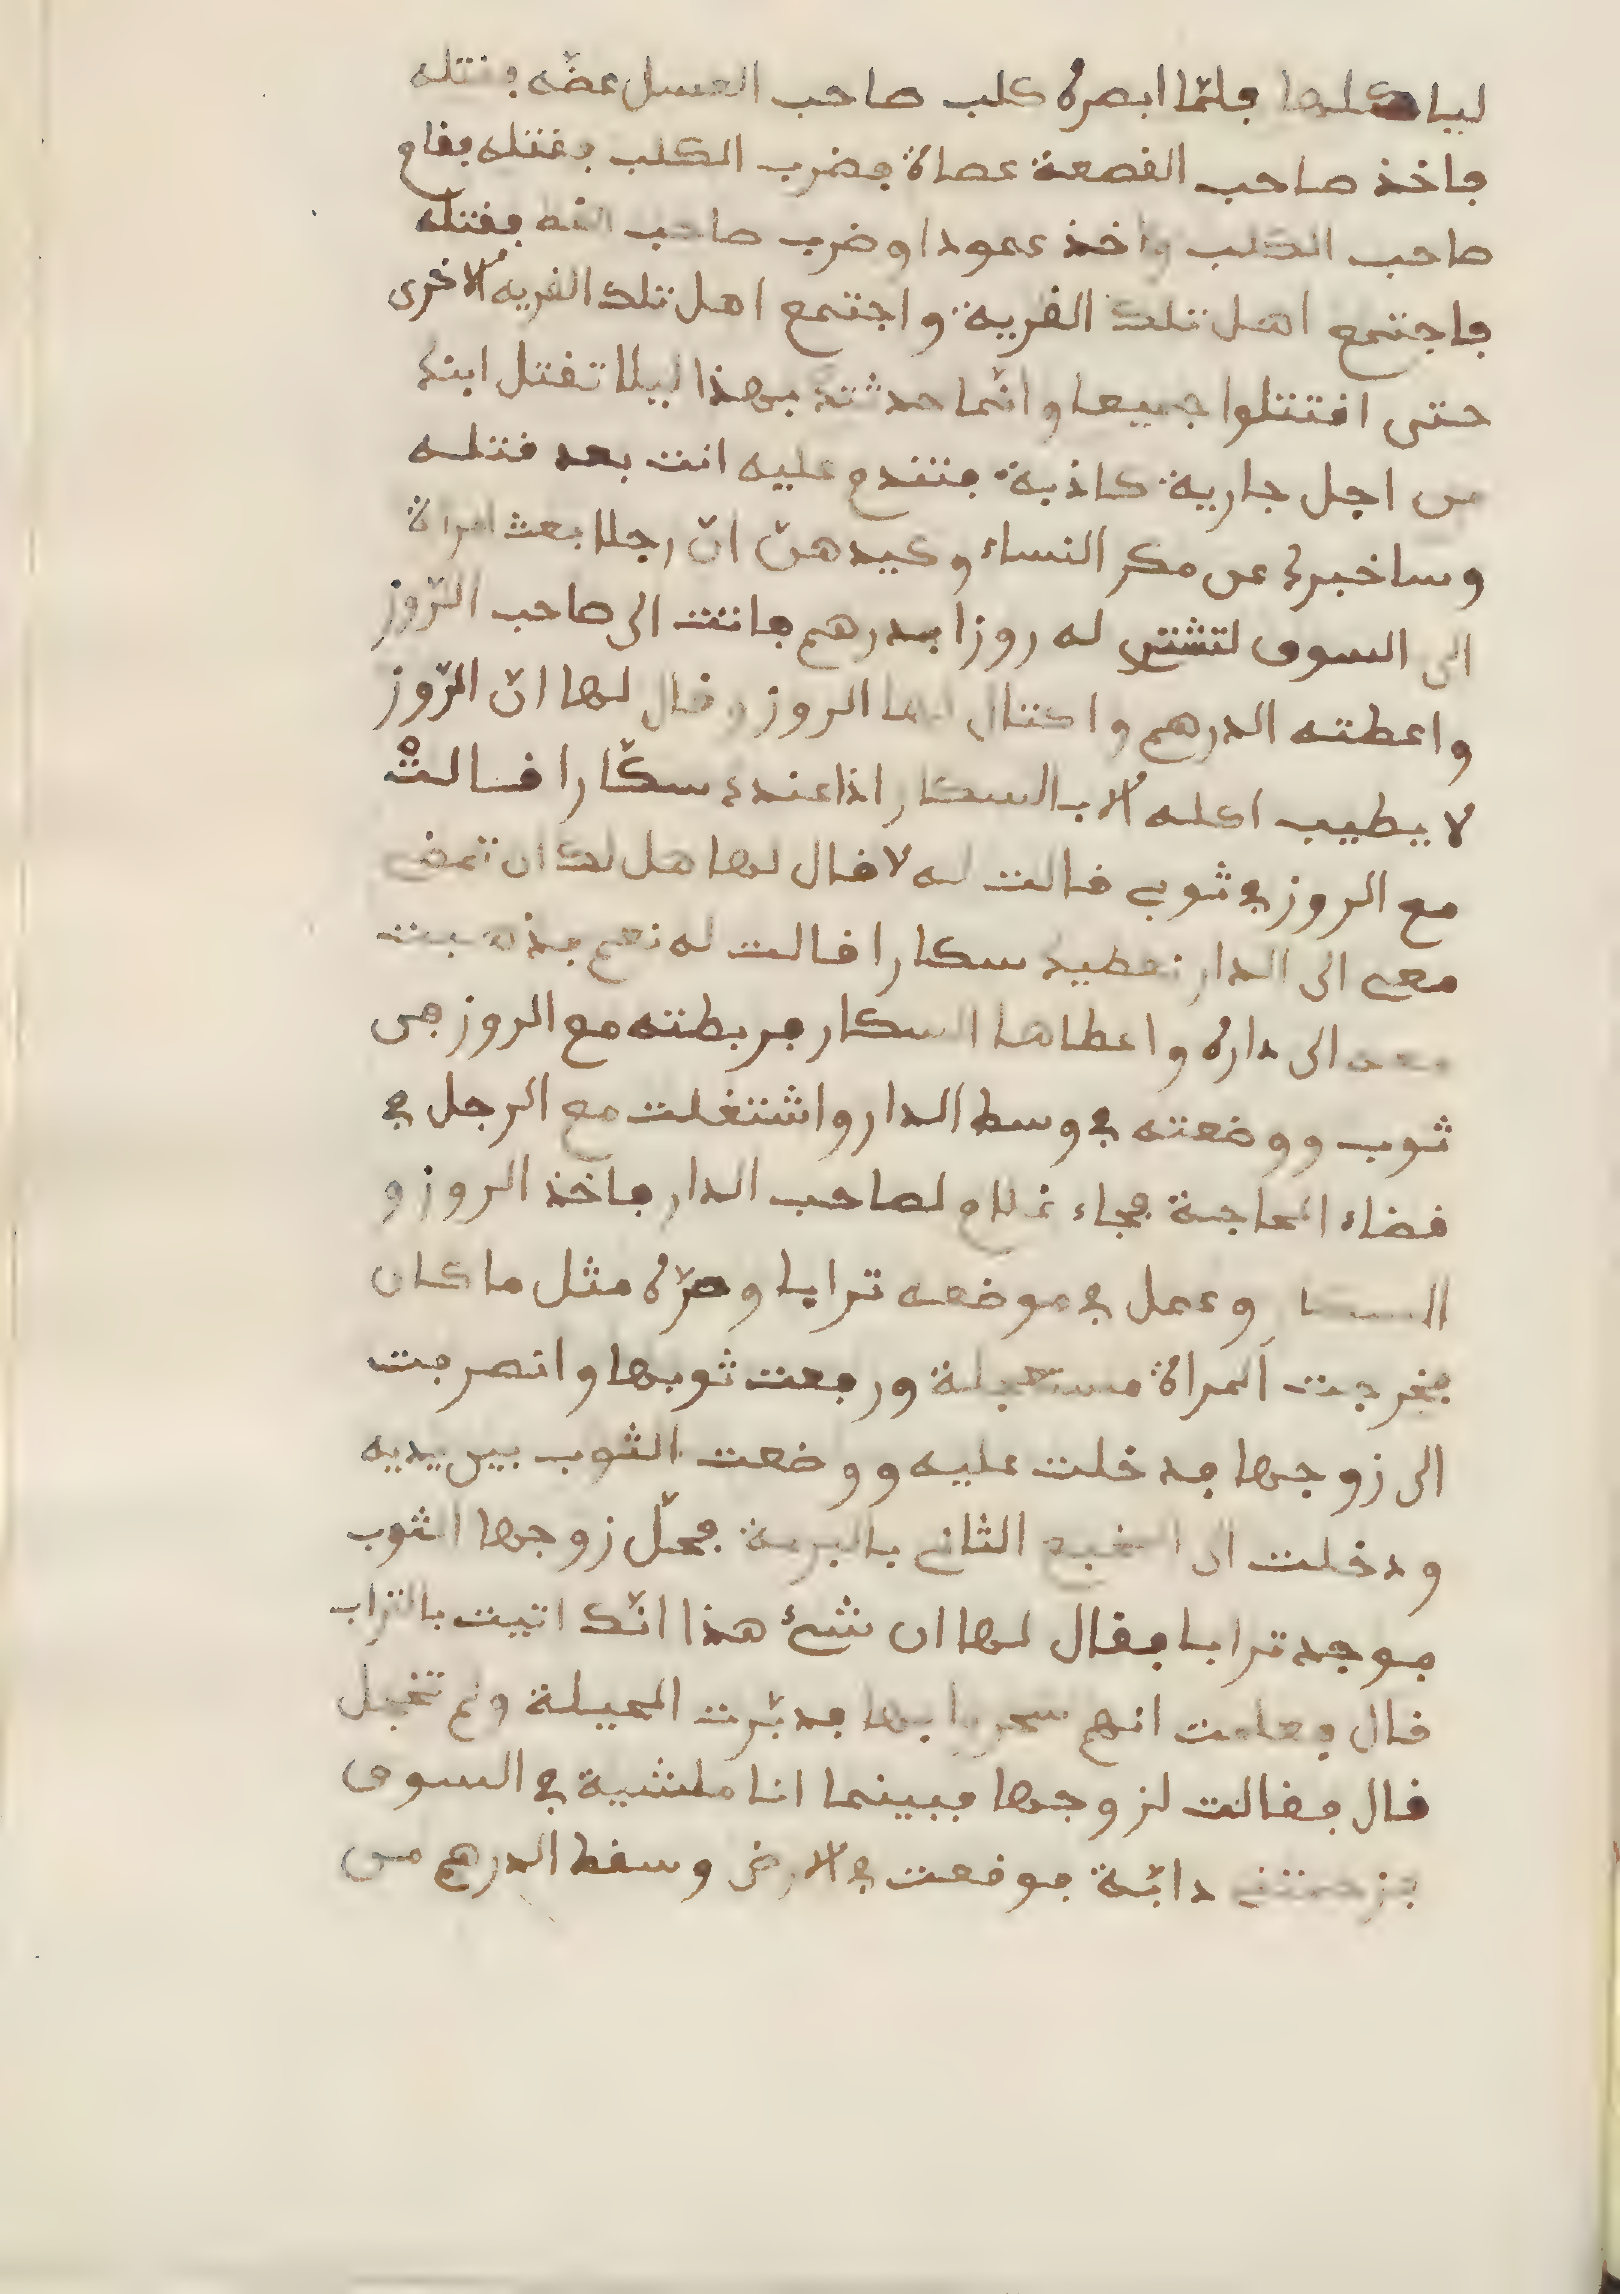 لياكلها فلمّا ابصره كلب صاحب العسل عضّه فقتله
فاخذ صاحب القصعة عصاة فضرب الكلب فقتله فقام
صاحب الكلب واخذ عمودا وضرب صاحب القط فقتله
فاجتمع اهل تلك القرية واجتمع اهل تلك القريه الاخرى
حتى اقتتلوا جميعا وانّما حدثتك بهذا ليلا تقتل ابنك
من اجل جارية كاذبة فتندم عليه انت بعد قتله
وساخبرك عن مكر النساء وكيدهنّ انّ رجلا بعث امراة
الى السوق لتشتري له روزا بدرهم فاتت الى صاحب الرّوز
واعطته الدرهم واكتال لها الروز وقال لها انّ الرّوز
لا يطيب اكله الا بالسكار اذا عندك سكّارا قالتْ
مع الروز في ثوبي قالت له لا قال لها هل لك ان تمضي
معي الى الدار نعطيك سكارا قالت له نعم فذهبت
معه الى داره واعطاها السكار فربطته مع الروز في
ثوب ووضعته في وسط الدار واشتغلت مع الرجل في
قضاء الحاجة فجاء غلام لصاحب الدار فاخذ الروز و
السكار وعمل في موضعه ترابا وصرّه مثل ما كان
فخرجت المراة مستعجلة ورفعت ثوبها وانصرفت
الى زوجها فدخلت عليه ووضعت الثوب بين يديه
ودخلت الى المخبع الثاني بالبرمة فحلّ زوجها الثوب
فوجد ترابا فقال لها اي شيء هذا انّك اتيت بالتراب
قال فعلمت انهم سخروا بها فدبّرت الحيلة ولم تخجل
قال فقالت لزوجها فبينما انا ماشية في السوق
فزحمتني دابّة فوقعت في الارض وسقط الدرهم من